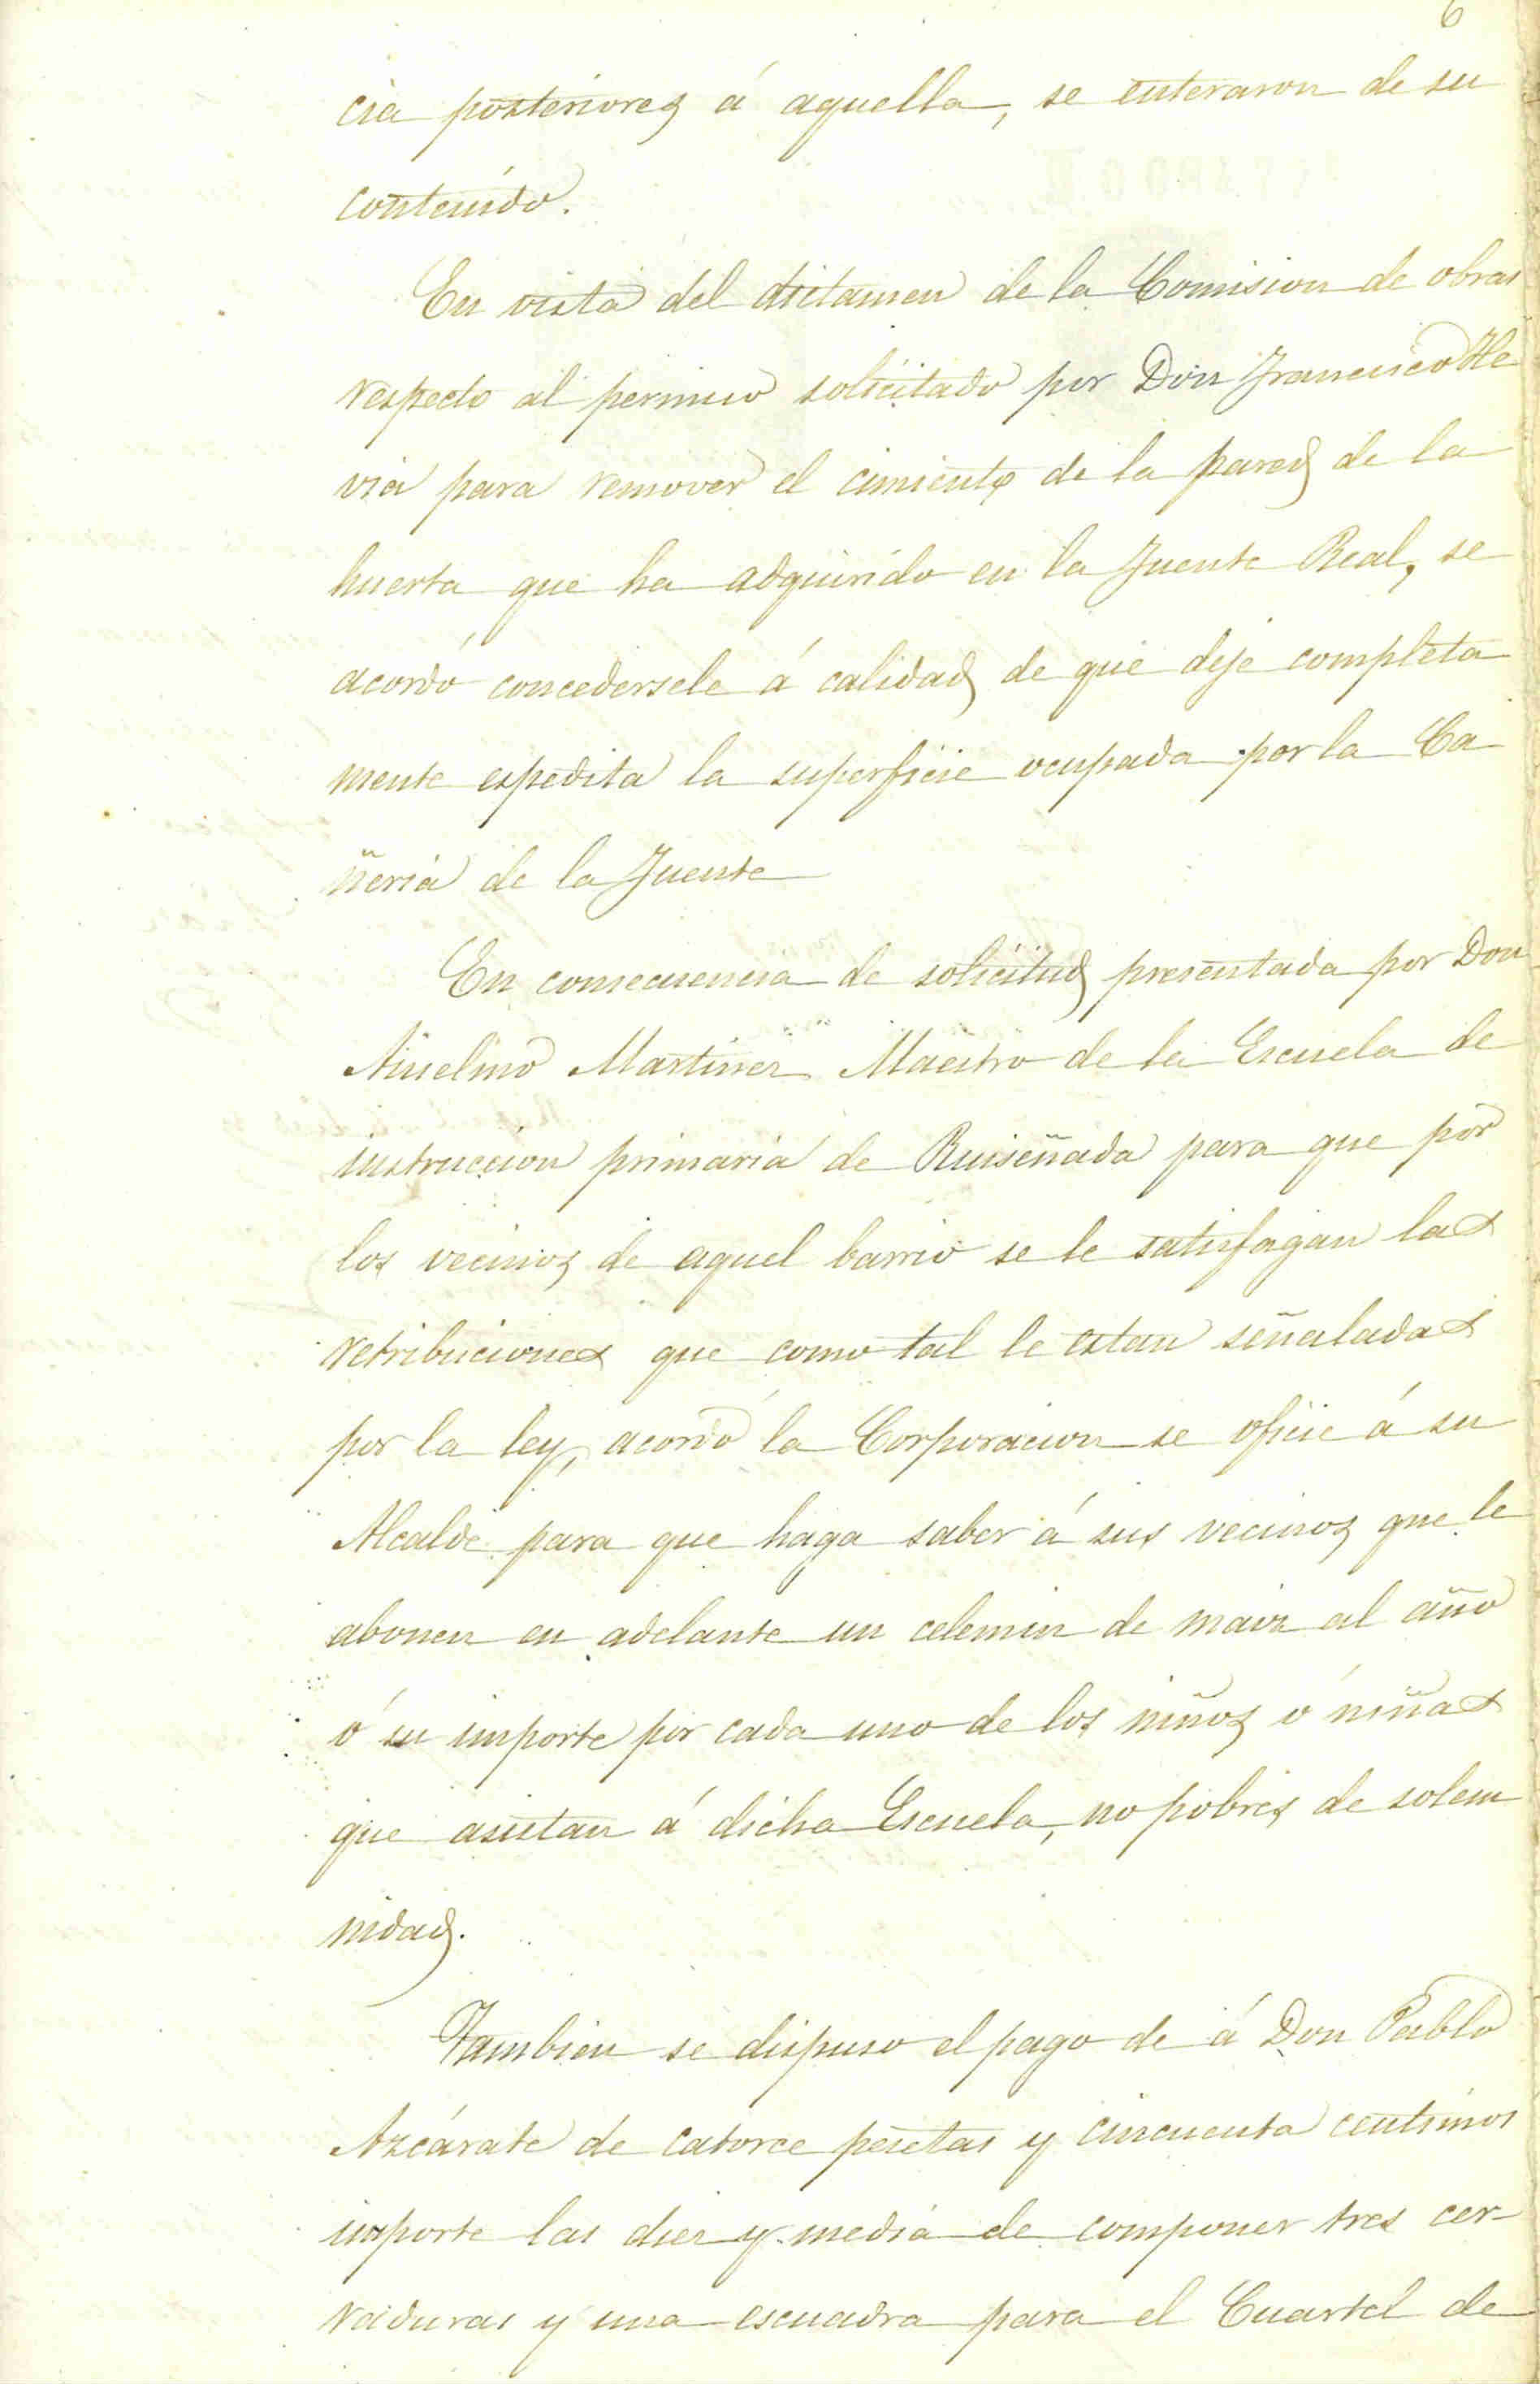 6
cia posteriores á aquella, se enteraron de su
contenido.
En vista del dictamen de la Comision de obras
respecto al permiso solicitado por Don Francisco He
via para remover el cimiento de la pared de la
huerta que ha adquirido en la Fuente Real, se
acordó concedersele á calidad de que deje completa
mente espedita la superficie ocupada por la Ca
ñeria de la Fuente
En consecuencia de solicitud presentada por Don
Anselmo Martinez Maestro de la Escuela de
instruccion primaria de Ruiseñada para que por
los vecinos de aquel barrio se le satisfagan las
retribuciones que como tal le estan señaladas
por la ley, acordó la Corporacion se oficie á su
Alcalde para que haga saber á sus vecinos que le
abonen en adelante un celemin de maiz al año
ó su importe por cada uno de los niños ó niñas
que asistan á dicha Escuela, no pobres de solem
nidad.
Tambien se dispuso el pago de á Don Pablo
Azcárate de catorce pesetas y cincuenta centimos
importe las diez y media de componer tres cer-
raduras y una escuadra para el Cuartel de